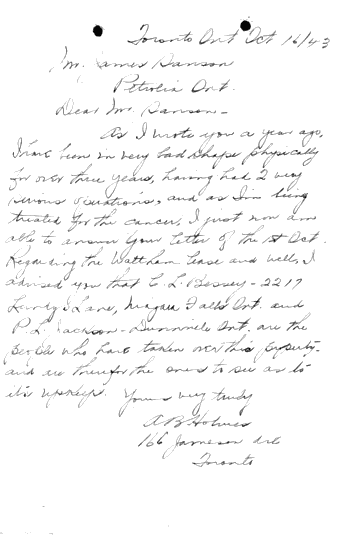 Toronto Ont Oct 16/43
Mr. James Sanson
Petrolia Ont.
Dear Mr. Sanson -
As I wrote you a year ago,
I have been in very bad shape physically
for over three years, having had 2 very
serious operations, and as I'm being
treated for the cancer, I just now am
able to answer your letter of the 1st Oct.
Regarding the Waltham lease and well, I
advised you that E. L. Bessey - 2217
Lundy's Lane, Niagara Falls Ont. and
P. L. Jackson - Dunnville Ont. are the
people who have taken over this property
and are therefor the ones to see as to
it's upkeep. Yours very truly
A B Holmes
166 Jameson Ave
Toronto